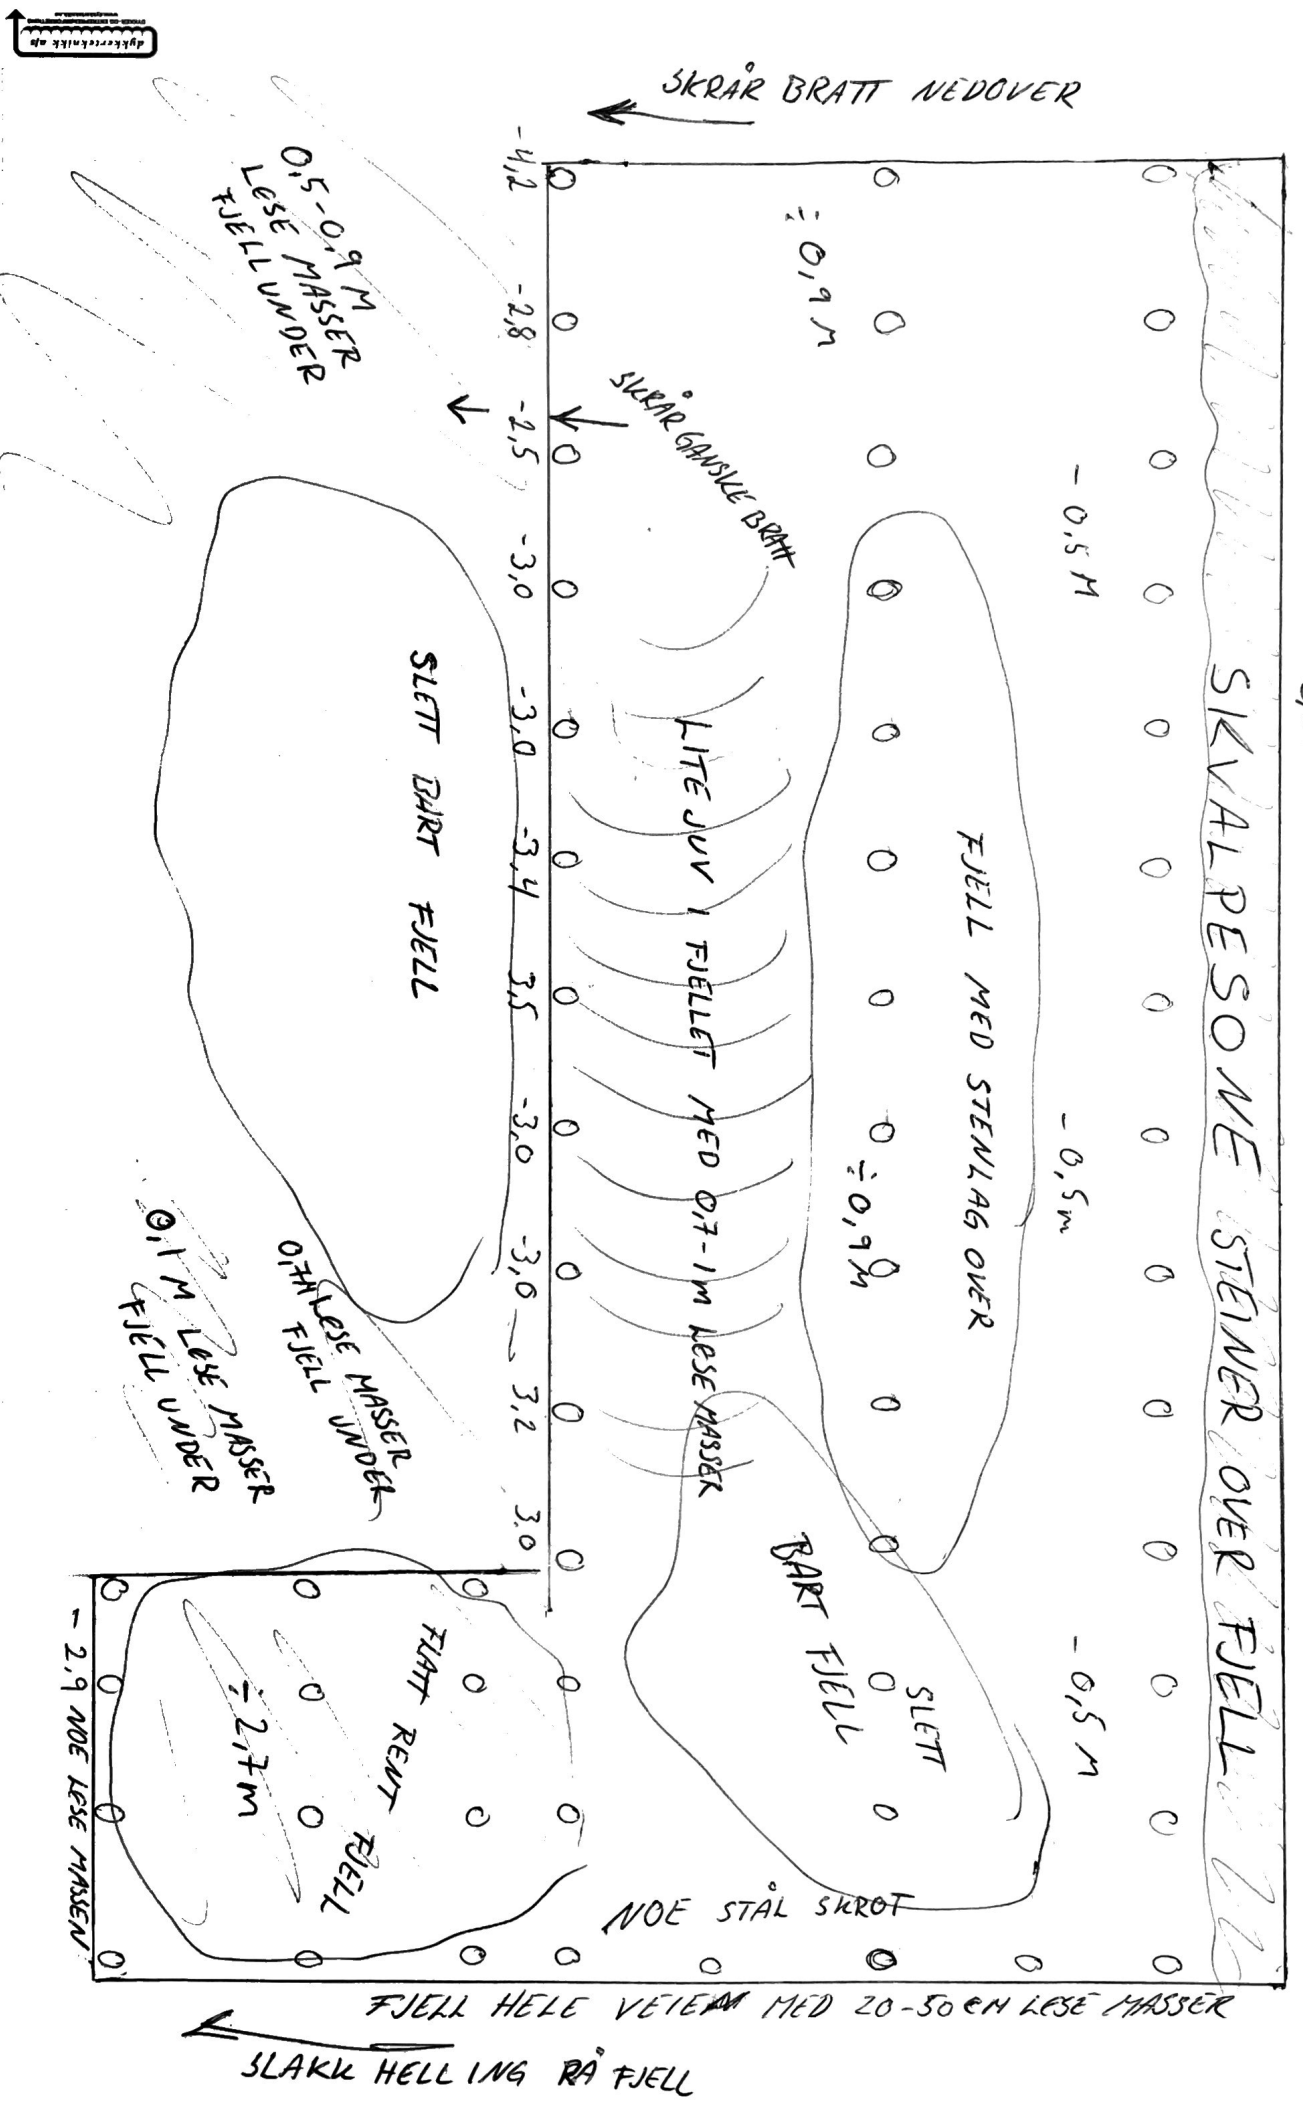 dykkerteknikk a/s
SKRÅR BRATT NEDOVER
SKVALPESONE (STEINER OVER FJELL
- 0,5 M
- 0,5 m
- 0,5 M
÷ 0,9 M
FJELL MED STENLAG OVER
÷ 0,9 M
SLETT
BART FJELL
SKRÅR GANSKE BRATT
LITE JUV I FJELLET MED 0,7-1 M LØSE MASSER
-4,2
-2,8
-2,5
-3,0
-3,0
-3,4
3,5
-3,0
-3,0
3,2
3.0
0,5-0,9 M
LØSE MASSER
FJELL UNDER
SLETT BART FJELL
0,7M LØSE MASSER
FJELL UNDER
0,1 M LØSE MASSER
FJELL UNDER
FLATT RENT FJELL
÷ 2,7m
- 2,9 NOE LØSE MASSEN
NOE STÅL SKROT
FJELL HELE VEIEN MED 20-50 CM LØSE MASSER
SLAKK HELLING PÅ FJELL